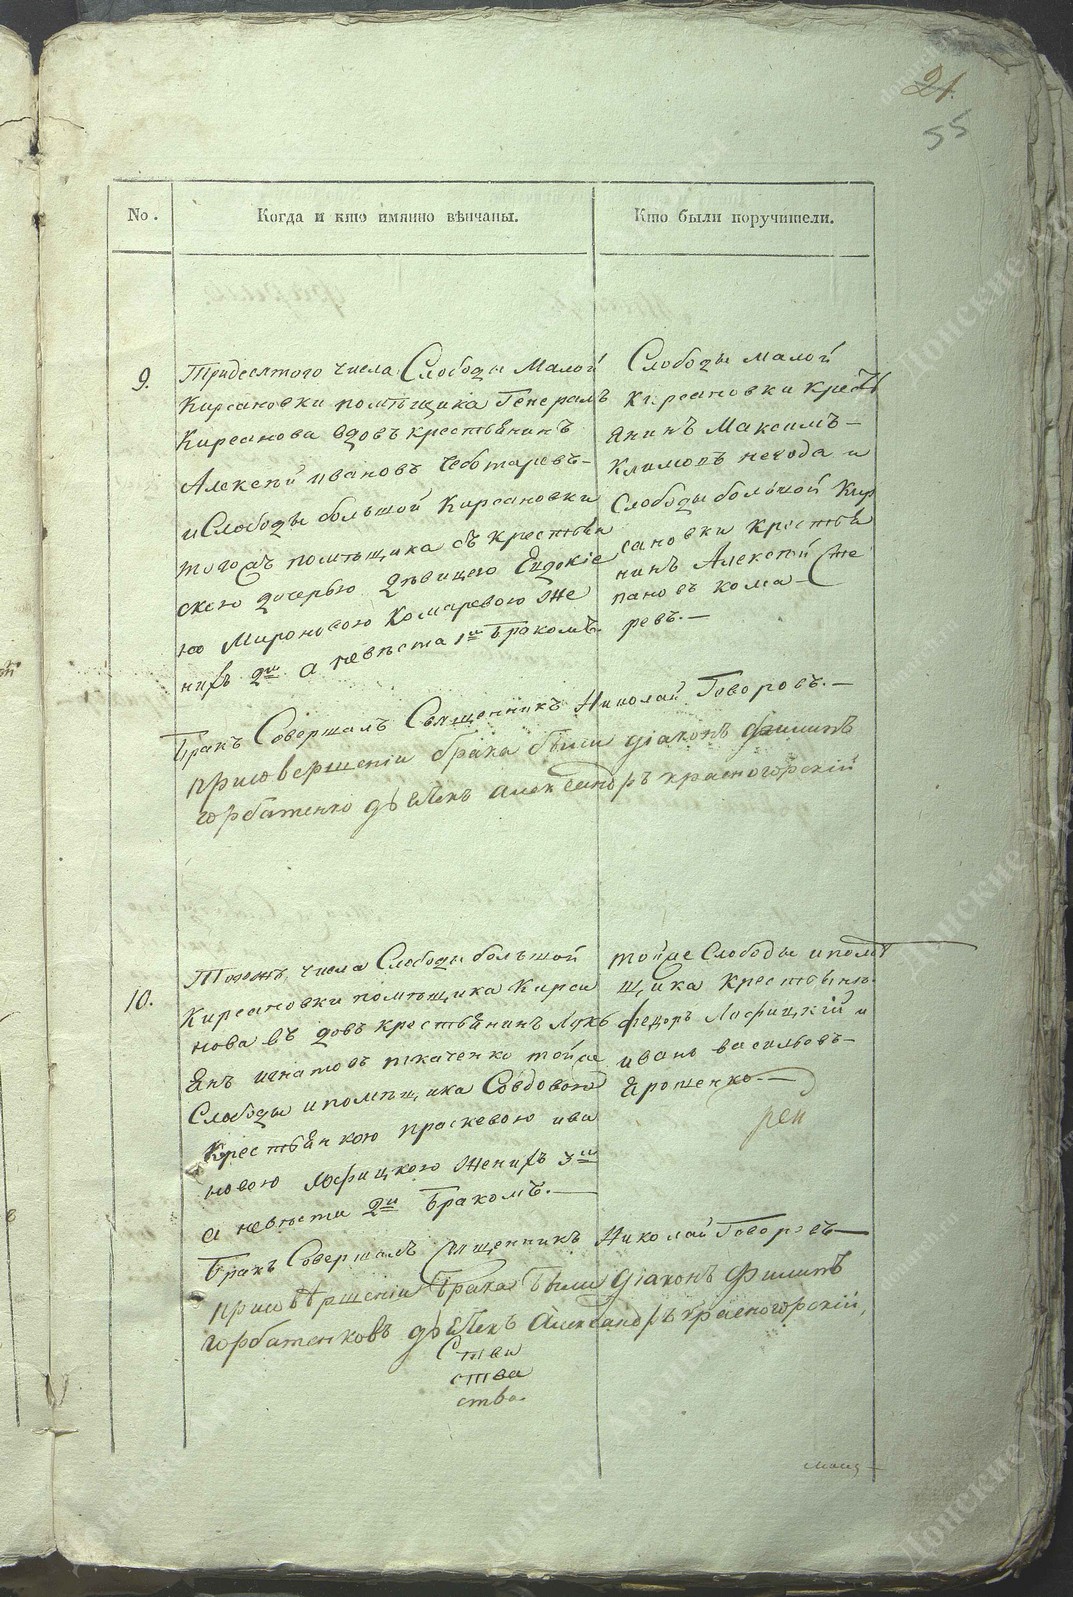 21.
55
No.
Когда и кто имянно вѣнчаны.
Кто были поручители.
9.
Тридесятого числа Слободы Малой
Кирсановки помѣщика Генералъ
Кирсанова вдовъ крестьянинъ
Алексѣй Ивановъ Чеботаревъ
и Слободы большой Кирсановки
тогожъ помѣщика съ крестьян
скою дочерью дѣвицею Евдокіе
ю Мироновою Комаревою же
нихъ 2м а невѣста 1м бракомъ.
Слободы малой
Кирсановки кресть
янинъ Максимъ
Климовъ негода и
Слободы большой Кир
сановки крестья
нинъ Алексѣй Сте
пановъ кома
ревъ.
Бракъ Совершалъ Священникъ Николай Говоровъ.
присовершеніи брака были діаконъ Филипъ
горбатенко дьячекъ александръ красногорскій
10.
Тогожъ числа Слободы большой
Кирсановки помѣщика Кирса
нова въ довъ крестьянинъ Лукь
янъ игнатовъ ткаченко тойже
Слободы ипомѣщика Совдовою
Крестьянкою праскевою ива
новою Лафицкою женихъ 3м
а невѣста 2м бракомъ.
тойже Слободы ипомѣ
щика крестьяне
федоръ Лафицкій и
иванъ васильевъ
Ярошенко.
Бракъ Совершалъ Священникъ Николай Говоровъ
присовѣршеніи брака были діаконъ Филипъ
горбатенковъ дьячекъ Александръ красногорскій
ства
ства.